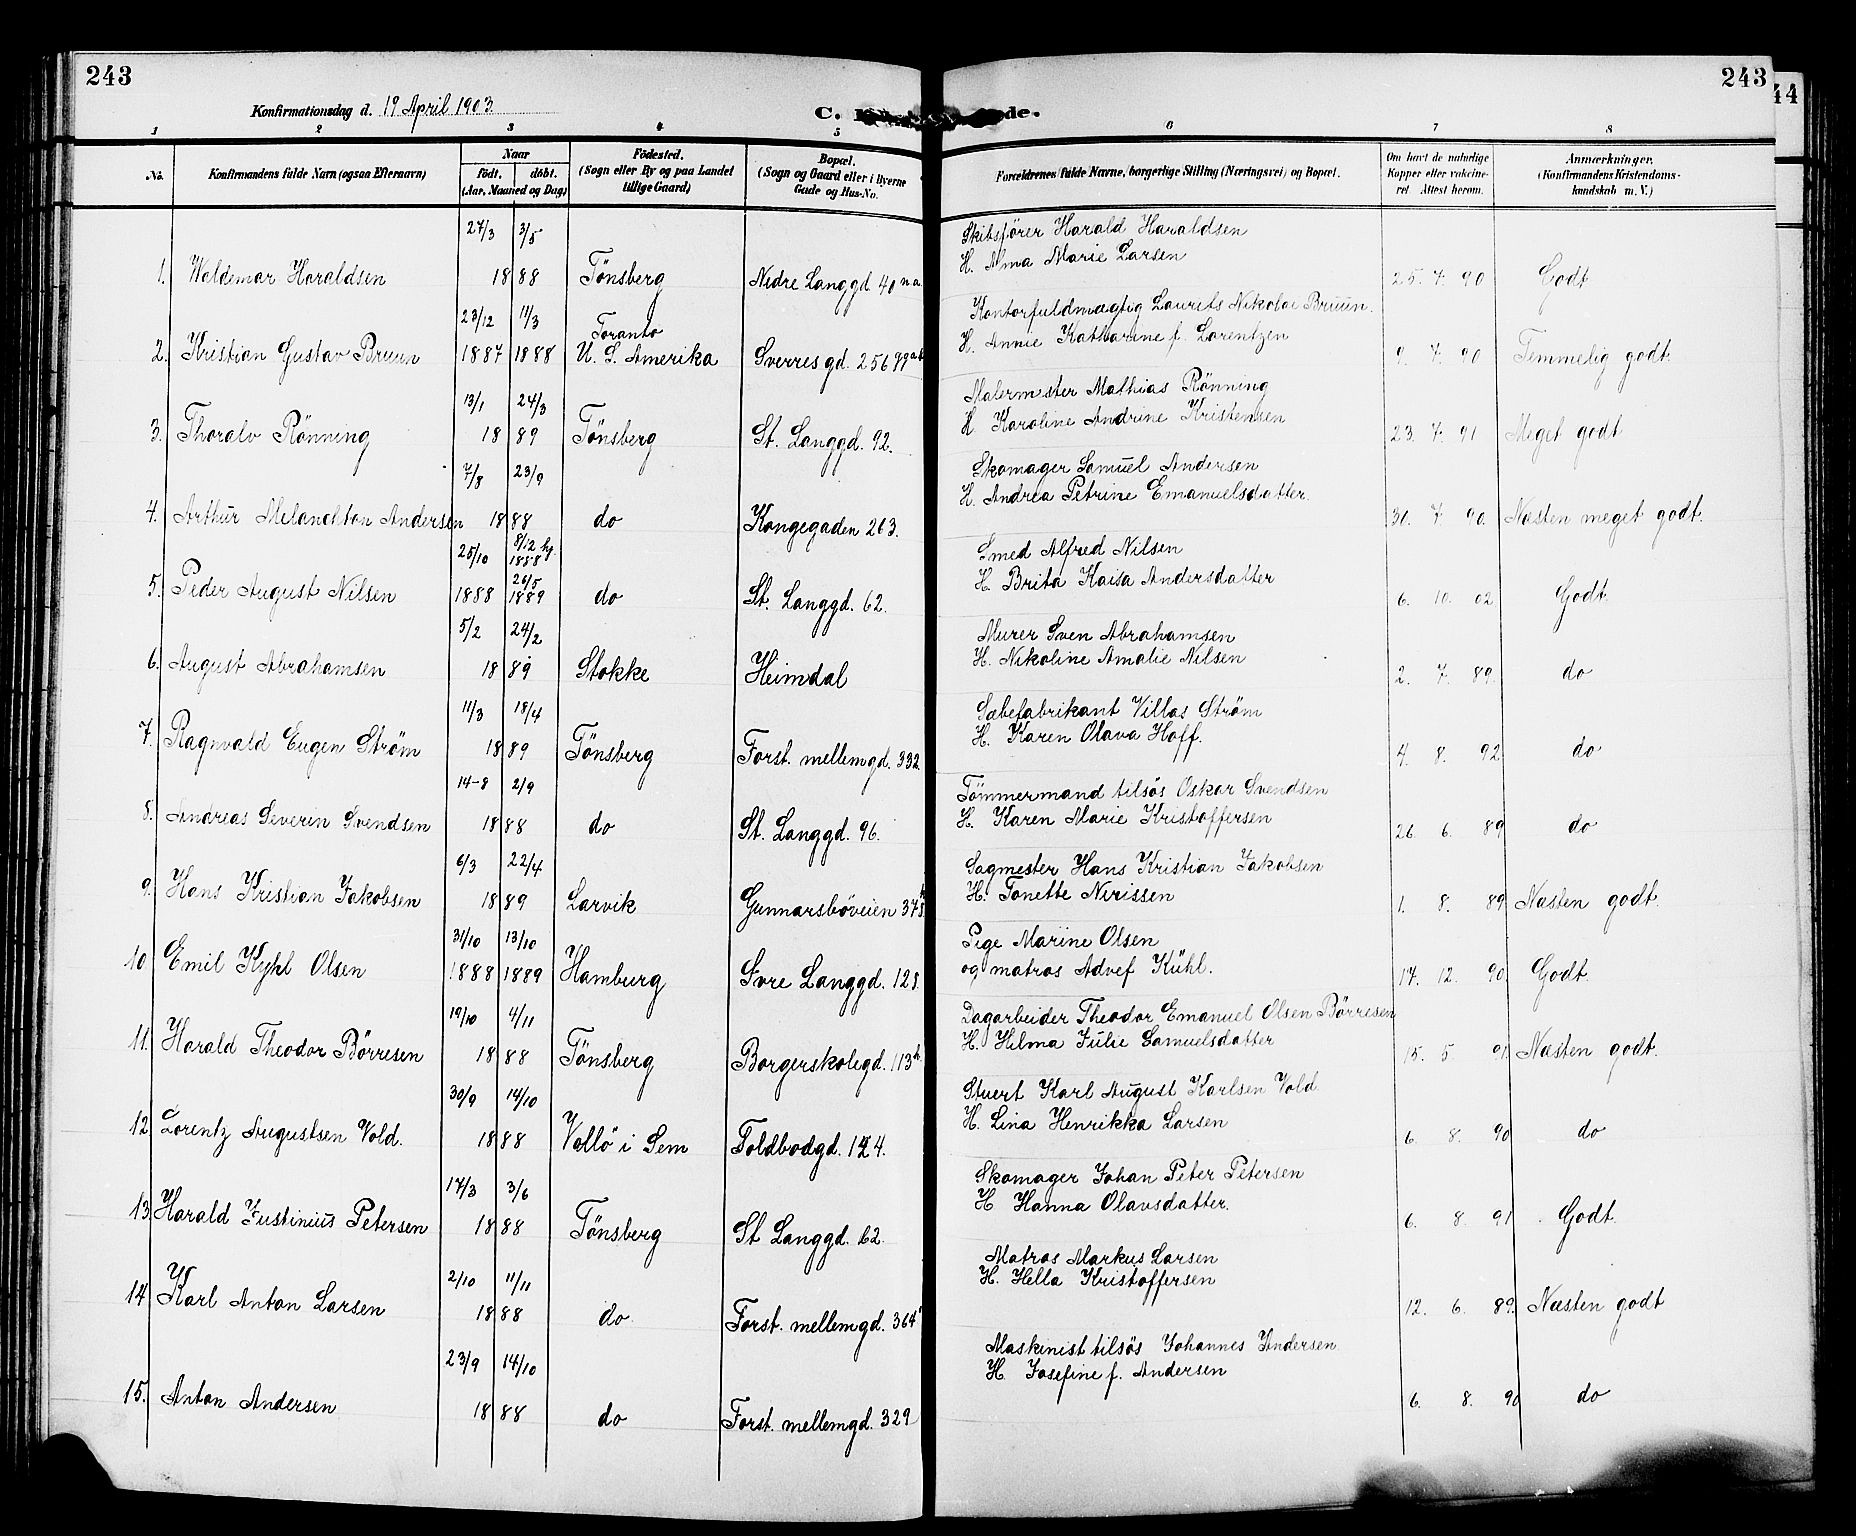 243
243
44
Konfirmationsdag d. 19 April 1903.
C. K de.
1 2 3 4 5 6 7 8
No.
Konfirmandens fulde Navn (ogsaa Efternavn)
Naar
født. døbt.
(Aar, Maaned og Dag)
Födested.
(Sogn eller By og paa Landet
tillige Gaard)
Bopæl.
(Sogn og Gaard eller i Byerne
Gade og Hus-No.
Forældrenes fulde Navne, borgerlige Stilling (Næringsvei) og Bopæl.
Om havt de naturlige
Kopper eller vakcine-
ret. Attest herom.
Anmærkninger.
(Konfirmandens Kristendoms-
kundskab m. V.)
27/3 3/5 Skibsfører Harald Haraldsen
H. Alma Marie Larsen
1. Waldemar Haraldsen 1888 Tönsberg Nedre Langgd 40 na 25. 7. 90 Godt
23/12 11/3 Toranto Kontorfuldmægtig Laurets Nikolai Bruun.
H. Annie Katharine f. Lorentzen
2. Kristian Gustav Bruun 1887 1888 U. S. Amerika Sverresgd. 256 99ab 9. 7. 90 Temmelig godt.
13/1 24/3 Malermester Mathias Rönning
H Karoline Andrine Kristensen
3. Thoralv Rönning 1889 Tönsberg St. Langgd. 92. 23. 7. 91 Meget godt
7/8 23/9 Skomager Samuel Andersen
H. Andrea Petrine Emanuelsdatter.
4. Arthur Melanchton Andersen 1888 do Kongegaden 263. 30. 7. 90. Næsten meget godt.
25/10 8/12 hj. 1888 Smed Alfred Nilsen
26/5 H. Brita Kaisa Andersdatter
5. Peder August Nilsen 1888 1889 do St. Langgd. 62. 6. 10. 02 Godt.
5/2 24/2 Murer Sven Abrahamsen
H. Nikoline Amalie Nilsen
6. August Abrahamsen 1889 Stokke Heimdal 2. 7. 89. do
11/3 18/4 Sæbefabrikant Villas Strøm
H. Karen Olava Hoff.
7. Ragnvald Eugen Strøm 1889 Tönsberg Forst. mellemgd. 332. 4. 8. 92 do
14-8 2/9 Tömmermand tilsös Oskar Svendsen
H. Karen Marie Kristoffersen
8. Andreas Severin Svendsen 1888 do St. Langgd. 96. 26. 6. 89 do
6/3 22/4 Sagmester Hans Kristian Jakobsen
H. Tonette Nirissen
9. Hans Kristian Jakobsen 1889 Larvik Gunnarsböveien 375 1. 8. 89 Næsten godt.
31/10 13/10 Pige Marine Olsen
og matros Advef Kühl.
10. Emil Kyhl Olsen 1888 1889 Hamburg Svre Langgd. 128. 17. 12. 90 Godt.
19/10 4/11 Dagarbeider Theodor Emanuel Olsen Börresen
H. Hilma Julie Samuelsdatter
11. Harald Theodor Börresen 1888 Tönsberg Borgerskolegd. 113h. 15. 5. 91 Næsten godt.
30/9 14/10 Stuert Karl August Karlsen Vold.
H. Lina Henrikka Larsen
12. Lorentz Augustsen Vold. 1888 Vallö i Sem Toldbodgd. 124. 6. 8. 90 do
17/3 3/6 Skomager Johan Peter Petersen
H Hanna Olavsdatter.
13. Harald Justinius Petersen 1888 Tönsberg St Langgd. 62. 6. 8. 91 Godt.
2/10 11/11 Matros Markus Larsen
H. Hella Kristoffersen
14 Karl Anton Larsen 1888 do Forst. mellemgd. 364 12. 6. 89. Næsten godt
23/9 14/10 Maskinist tilsös Johannes Andersen.
H. Josefine f. Andersen
15. Anton Andersen 1888 do Forst. mellemgd. 329 6. 8. 90 do